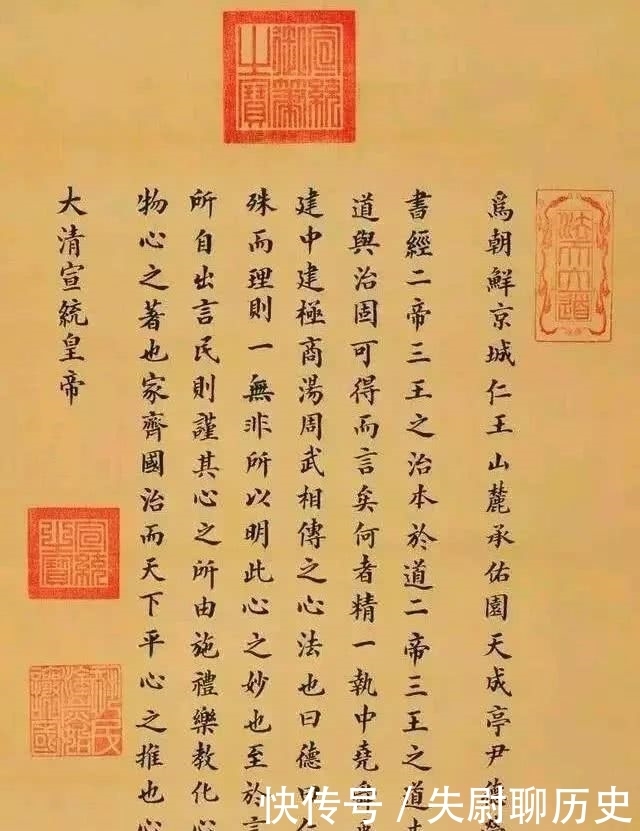 宣統御筆之寶
法天立道
爲朝鮮京城仁王山麓承佑園天成亭尹德
書經二帝三王之治本於道二帝三王之道本
道與治固可得而言矣何者精一執中堯舜
建中建極商湯周武相傳之心法也曰德曰仁
殊而理則一無非所以明此心之妙也至於言
所自出言民則謹其心之所由施禮樂教化心
物心之著也家齊國治而天下平心之推也心
大清宣統皇帝
宣統之寶
快传号 / 失尉聊历史